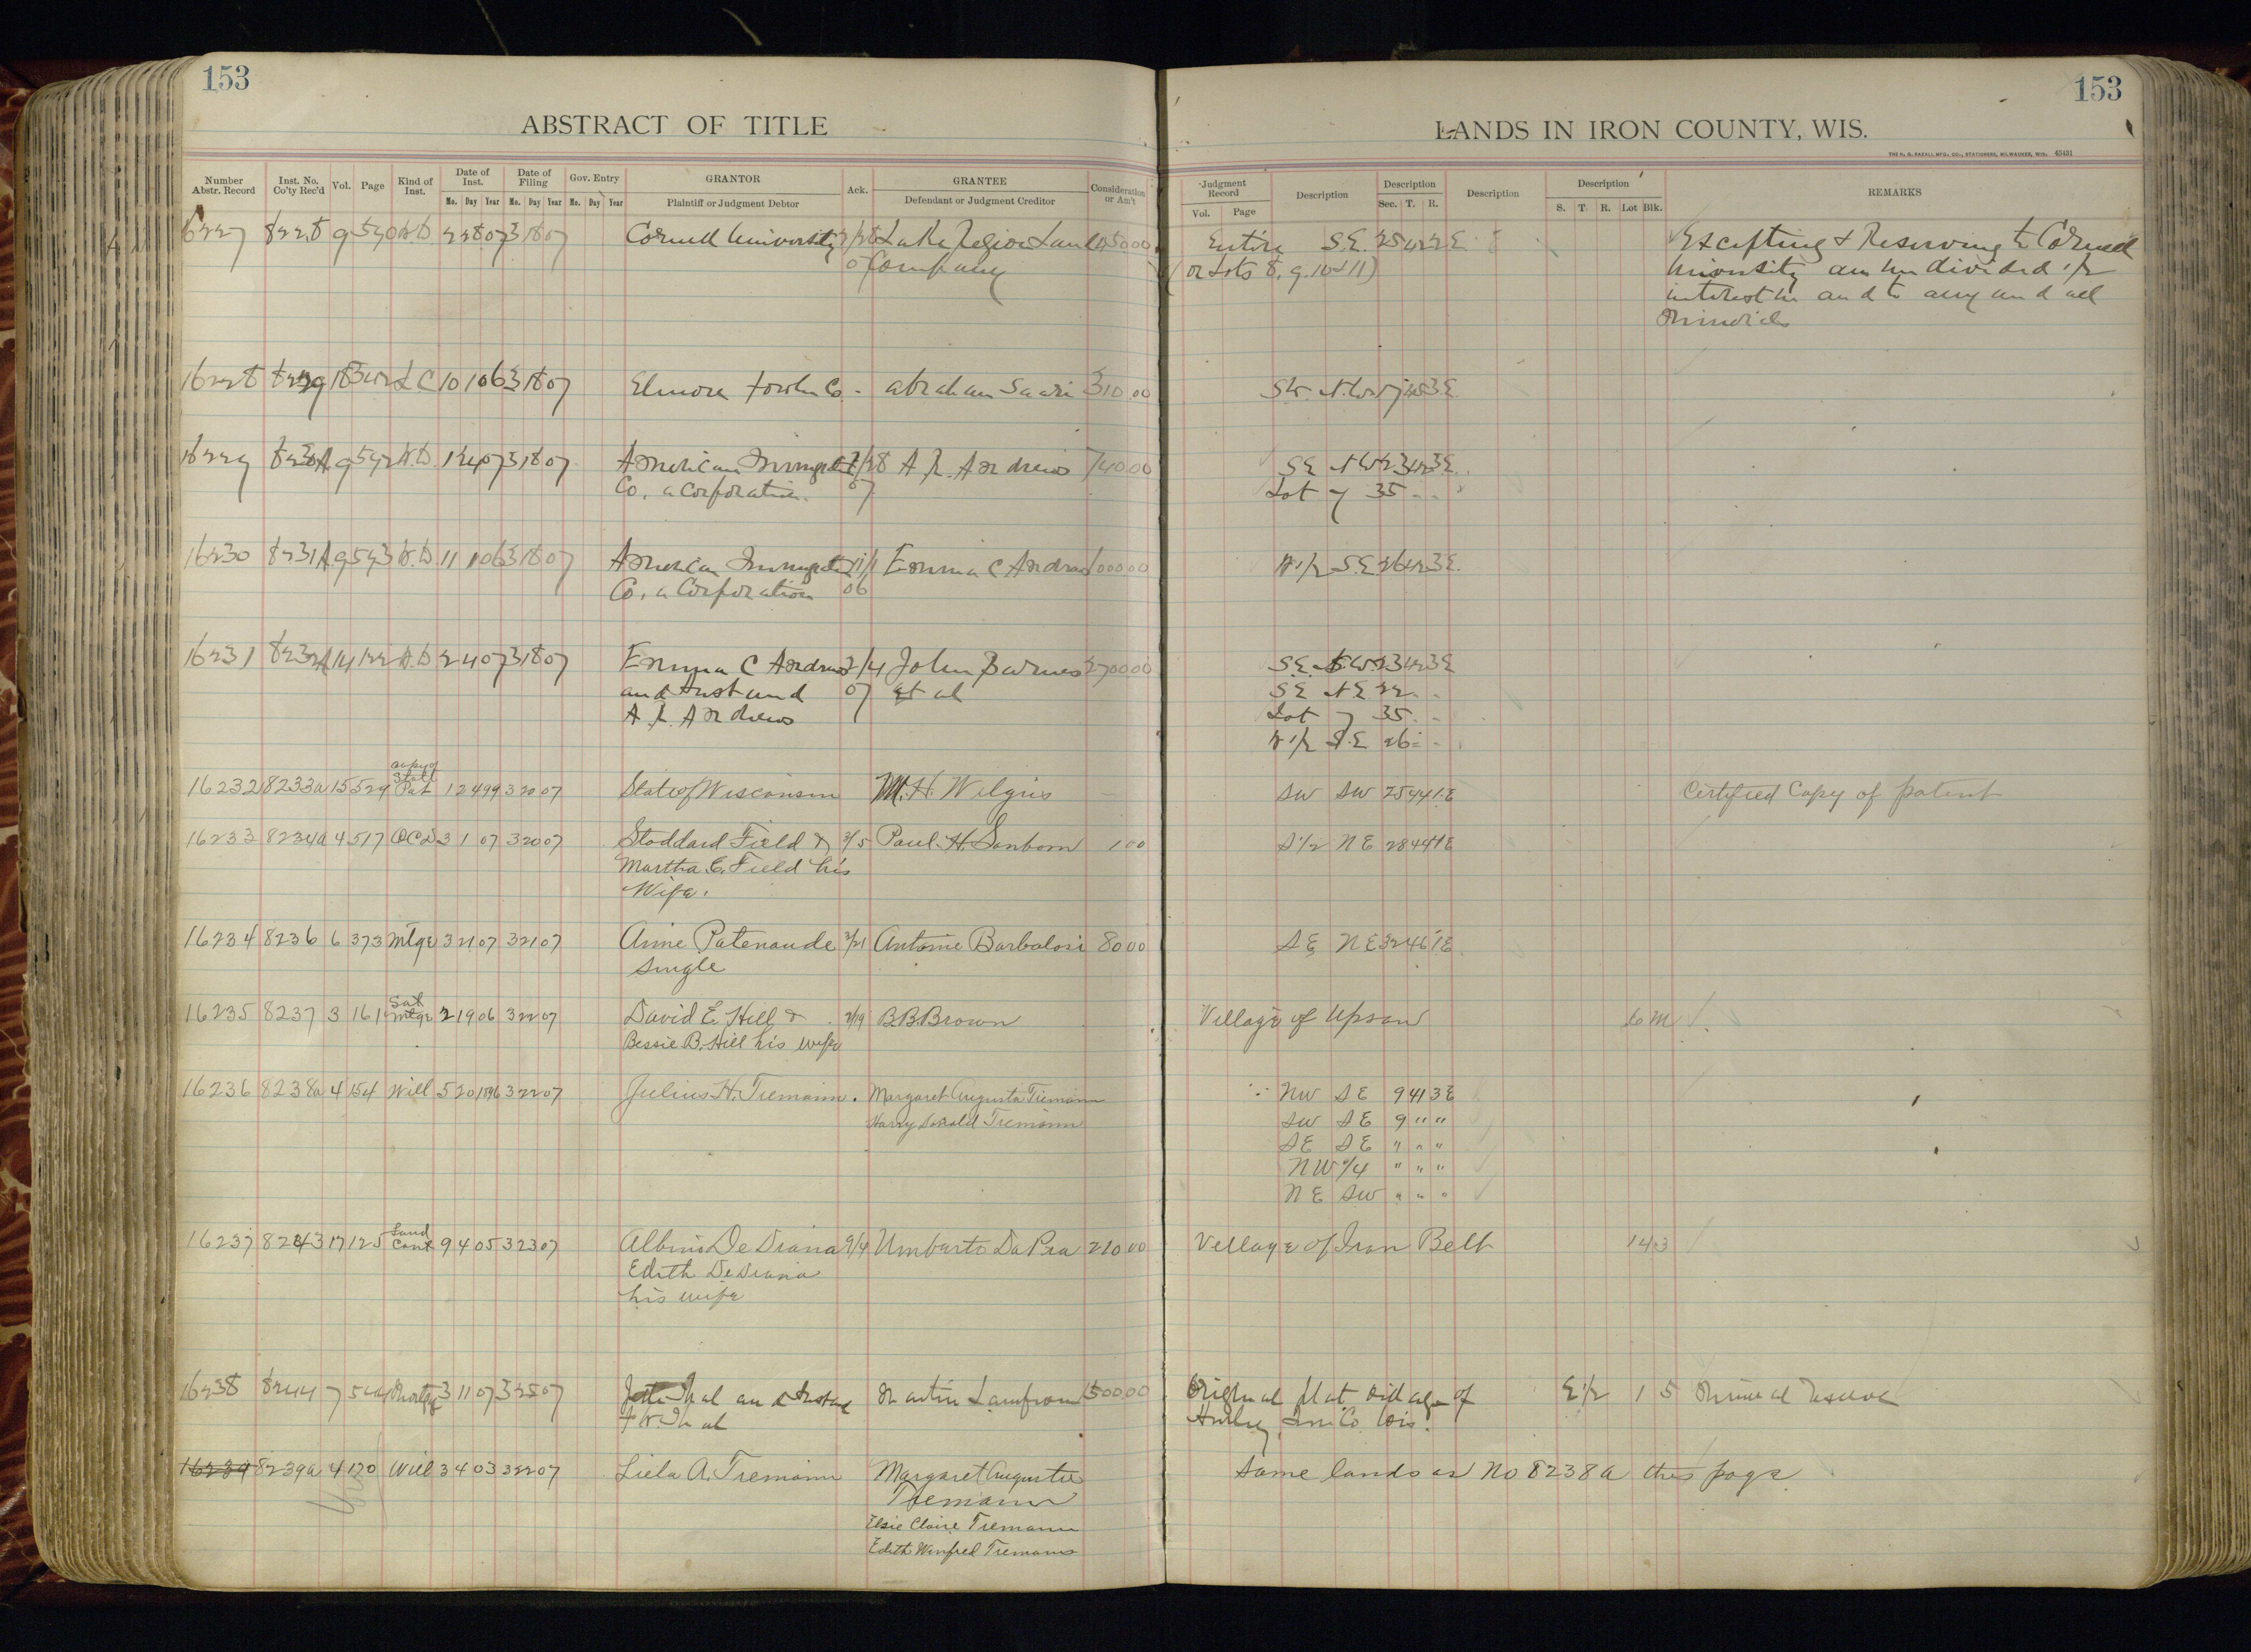 153
ABSTRACT OF TITLE
Number Abstr. Record Inst. No. Co'ty Rec'd Vol. Page Kind of Inst. Date of Inst. Date of Filing Gov. Entry GRANTOR Ack. GRANTEE Consideration or Am't
Mo. Day Year Mo. Day Year Mo. Day Year Plaintiff or Judgment Debtor Defendant or Judgment Creditor
16227 8228 9 590 W.D 2 28 07 3 18 07 Cornell University 2/28 Lake Region Land
07 Company
16228 8229 18 L C 10 1 06 3 18 07 Elmore Co. - Abraham Saari 310.00
16229 8230A 9 592 W.D. 1 24 07 3 18 07 American Immigration 1/28 A. R. Andrews 740.00
Co. a Corporation. 07
16230 8231A 9 593 W.D 11 1 06 3 18 07 American Immigration 11/1 Emma C Andrews 1000.00
Co. a Corporation 06
16231 8232A 14 122 W.D 2 4 07 3 18 07 Emma C Andrews 2/4 John Barnes 2700.00
and Husband 07 et al
A. R. Andrews
copy of
State
16232 8233a 15 529 Pat 1 24 99 3 20 07 State of Wisconsin M. H. Wilgris
16233 8234a 4 517 QCD 3 1 07 3 20 07 Stoddard Field & 3/5 Paul H. Sanborn 1 00
Martha C. Field his
Wife.
16234 8236 6 373 Mtge 3 21 07 3 21 07 Aime Patenaude 3/21 Antoine Barbalosi 80 00
single
Sat
16235 8237 3 161 Mtge 2 19 06 3 22 07 David E. Hill & 2/19 B.B. Brown
Bessie B. Hill his wife
16236 8238a 4 154 Will 5 20 1896 3 22 07 Julius H. Tiemann. Margaret Augusta Tiemann
Harry Donald Tiemann
Land
16237 8243 17 125 Cont 9 4 05 3 23 07 Albino De Diana 9/4 Umberto Da Pra 210 00
Edith De Diana
his wife
16238 8244 7 3 11 07 3 25 07 and Husband Martin Lanfrom 1500.00
16239 8239a 4 170 Will 3 4 03 3 22 07 Liela A. Tiemann Margaret Augusta
Tiemann
Elsie Claire Tiemann
Edith Winfred Tiemann
153
LANDS IN IRON COUNTY, WIS.
THE H. G. RAZALL MFG. CO., STATIONERS, MILWAUKEE, WIS. 45431
Judgment Record Description Description Description Description REMARKS
Vol. Page Sec. T. R. S. T. R. Lot Blk.
Entire S.E. 25 42 2 E Excepting & Reserving to Cornell
(or Lots 8, 9, 10 & 11) University an undivided 1/2
interest in and to any and all
Minerals
S.W. N.W. 3 E.
SE N W 23 42 3 E.
Lot 7 35 - -
W 1/2 S.E. 26 42 3 E.
S.E. N.W. 23 42 3 E
SE N E 22 - -
Lot 7 35 - -
W 1/2 S.E 26 - -
SW SW 25 44 1 E Certified Copy of patent
S 1/2 NE 28 44 1 E
SE NE 32 46 1 E
Village of Upson 6 M
NW SE 9 41 3 E
SW SE 9 " "
SE SE " " "
NW 1/4 " " "
NE SW " " "
Village of Iron Belt 14 3
Original plat village of E 1/2 1 5 Mineral Reserve
Hurley, Iron Co. Wis.
Same lands as No 8238a this page